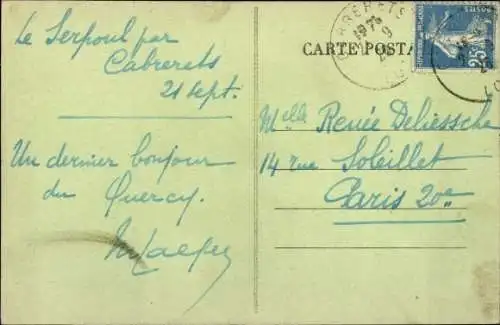 Le Serpoul par
Cabrerets
21 Sept.
Un dernier bonjour
du Quercy.
CABRERETS
CARTE POSTA
25
Melle Renée Deliessche
14 rue Soleillet
Paris 20e